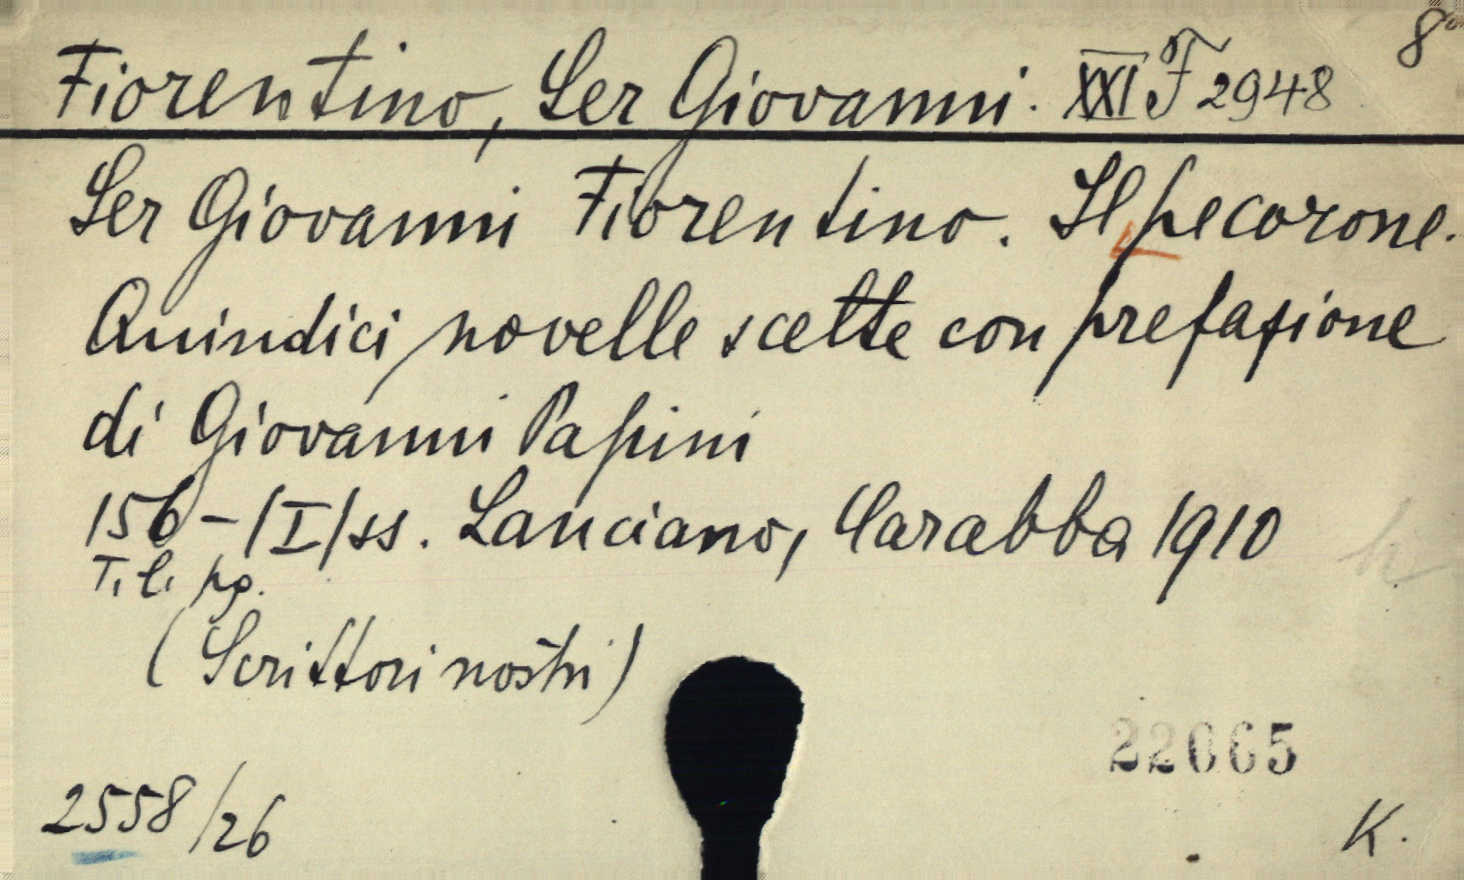 8°
Fiorentino, Ser Giovanni. XXI F 2948
Ser Giovanni Fiorentino. Il pecorone.
Quindici novelle scelte con prefazione
di Giovanni Papini
156 - /I/ ss. Lanciano, Carabba 1910
T. l. pg.
(Scrittori nostri)
22665
2558/26
K.